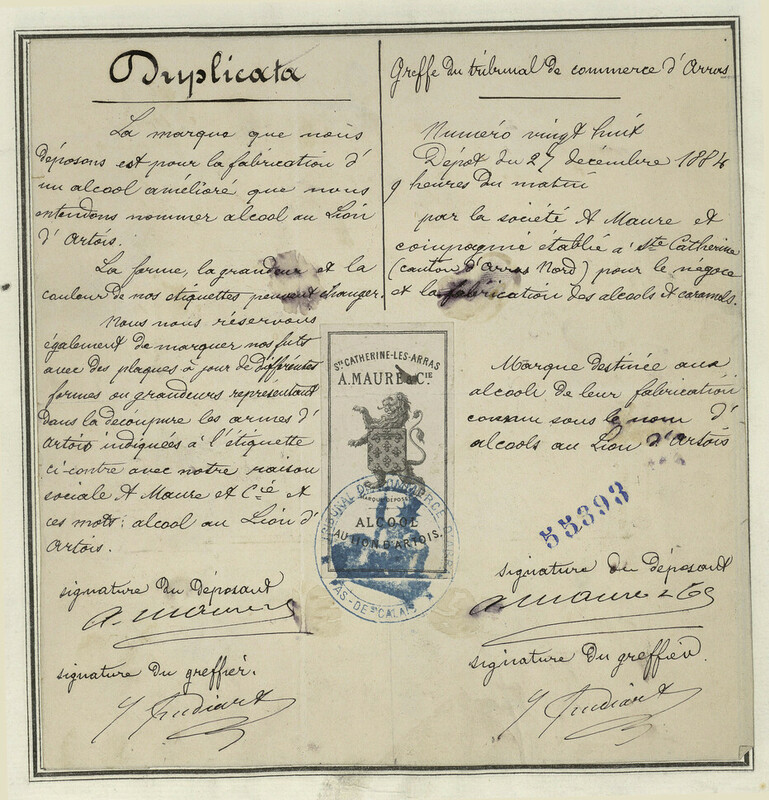 Duplicata
La marque que nous
déposons est pour la fabrication d'
un alcool améliore que nous
entendons nommer alcool au Lion
d'Artois.
La forme, la grandeur et la
couleur de nos étiquettes peuvent changer.
Nous nous réservons
également de marquer nos futs
avec des plaques à jour de différentes
formes ou grandeurs représentant
dans la découpure les armes d'
Artois indiquées à l'étiquette
ci-contre avec notre raison
sociale A Maure et Cie et
ces mots: alcool au Lion d'
Artois.
signature du déposant
A. Maure
signature du greffier.
Greffe du tribunal de commerce d'Arras
Numéro vingt huit
Dépot du 27 décembre 1884
9 heures du matin
par la société A Maure et
compagnie établie à Ste Catherine
(canton d'Arras Nord) pour le négoce
et la fabrication des alcools et caramels.
Marque destinée aux
alcools de leur fabrication
connu sous le nom d'
alcools au Lion d'Artois
55393
signature du déposant
A. Maure & Co
signature du greffier.
STE CATHERINE-LES-ARRAS
A. MAURE & CIE
MARQUE DÉPOSÉE
ALCOOL
AU LION D'ARTOIS.
TRIBUNAL DE COMMERCE D'ARRAS
PAS-DE-CALAIS